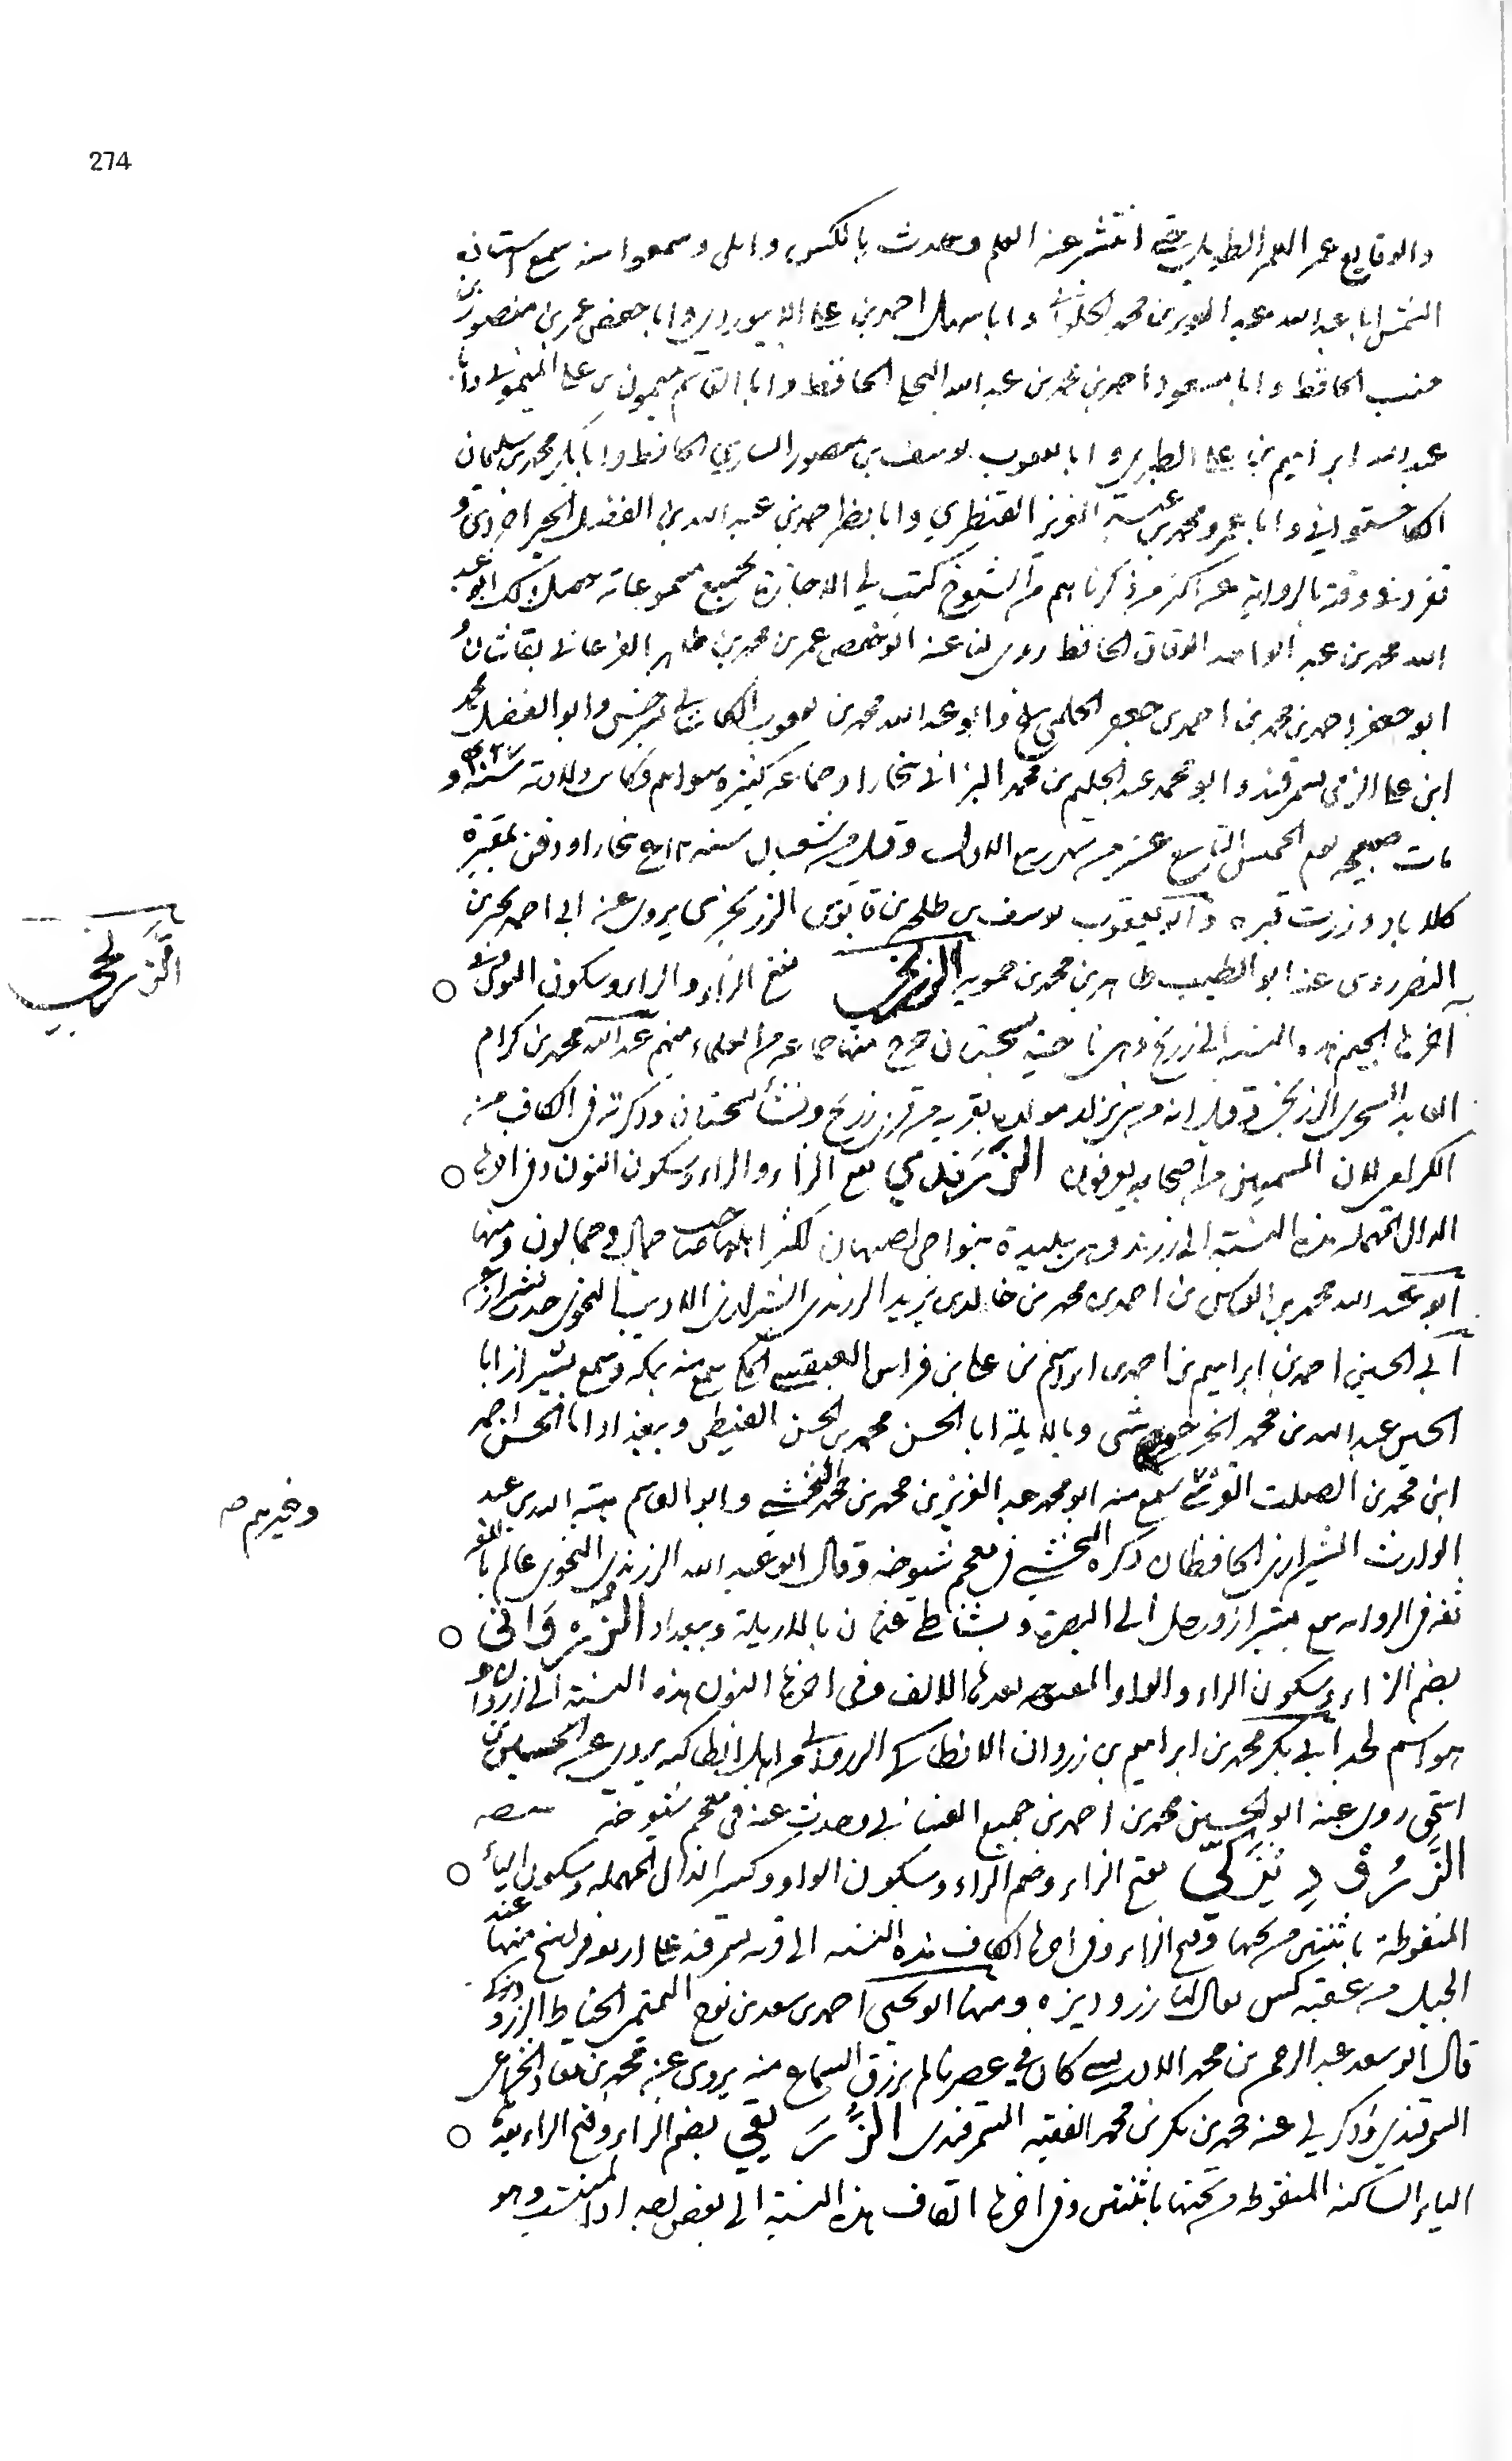 274
والوقايع عمر العمر الطويل حتى انتشر عنه العلم وحدث بالكثير واملى وسمعوا منه سمع استاذه
ابا عبد الله عبد العزيز بن محمد الحلواني وابا سهل احمد بن علي الابيوردي وابا حفص عمر بن منصور بن
خنب الحافظ وابا مسعود احمد بن محمد بن عبد الله البجلي الحافظ وابا القاسم ميمون بن علي الميموني وابا
عبد الله ابراهيم بن علي الطبري وابا يعقوب يوسف بن منصور السياري الحافظ وابا بكر محمد بن سليمان
الكاخستواني وابا عمرو محمد بن عبد العزيز القنطري وابا محمد بن عبد الله بن الفضل
تفرد في وقته بالرواية عن اكثر من ذكرناهم من الشيوخ كتب لي الاجازة بجميع مسموعاته حصل ذلك ابو عبد
الله محمد بن عبد الواحد الدقاق الحافظ روى لنا عنه ابو حفص عمر بن محمد بن طاهر الفرغاني و
ابو جعفر احمد بن محمد بن احمد بن جعفر الخلمي ببلخ وابو عبد الله محمد بن يعقوب الكاشاني بسرخس وابو الفضل محمد
ابن علي بسمرقند وابو محمد عبد الحليم بن محمد البراني ببخارا وجماعة كثيرة سواهم وكانت ولادته سنة ٤٢٧ و
مات صبيحة يوم الخميس التاسع عشر من شعبان سنة ٥١٢ ببخارا ودفن بمقبرة
كلاباذ وزرت قبره وابو يعقوب يوسف بن طلحة بن الزرنجري يروي عنه ابي احمد بحير بن
النضر روى عنه ابو الطيب طاهر بن محمد بن حمويه الزرنجي بفتح الزاء والراء وسكون النون وفي
الزرنجي
آخرها الجيم هذه النسبة الى زرنج وهي ناحية بسجستان خرج منها جماعة من العلماء منهم ابو عبد الله محمد بن كرام
العابد السجزي الزرنجي وقيل انه من مولده بقرية من قرى زرنج ونشأ بسجستان وذكرته في الكاف منه
الكرامي لان المسمين من اصحابه يعرفون الزَّرَندي بفتح الزاء والراء وسكون النون وفي آخرها
الدال المهملة هذه النسبة الى زرند وهي بليدة بنواحي اصبهان اكثر اهلها اصحاب جمال وجمالون ومنها
ابو عبد الله محمد بن العباس بن احمد بن محمد بن خالد بن يزيد الزرندي الشيرازي الاديب النحوي حدث بشيراز عن
ابي الحسن احمد بن ابراهيم بن احمد بن ابراهيم بن علي بن فراس العبقسي المكي سمع منه بمكة وسمع بشيراز ابا
الحسن عبد الله بن محمد الخرجوشي وبالابلة ابا الحسن محمد بن الحسن وببغداد ابا الحسن احمد
ابن محمد بن الصلت القرشي سمع منه ابو محمد عبد العزيز بن محمد بن محمد النخشبي وابو القاسم هبة الله بن عبد
وغيرهم صح
الوارث الشيرازي الحافظان ذكره النخشبي في معجم شيوخه وقال ابو عبد الله الزرندي النحوي عالم بالنحو
ثقة في الرواية سمع بشيراز ورحل الى البصرة وبشاطئ عثمان بالابلة وببغداد الزُّرْوَاني
بضم الزاء وسكون الراء والواو المفتوحة بعدها الالف وفي آخرها النون هذه النسبة الى زروان و
هو اسم لجد ابي بكر محمد بن ابراهيم بن زروان الانطاكي الزرواني من اهل انطاكية يروي عن الحسين بن
اسحق روى عنه ابو الحسين محمد بن احمد بن جميع الغساني وحدث عنه في معجم شيوخه
الزَّرُوْدِيْزَكي بفتح الزاء وضم الراء وسكون الواو وكسر الدال المهملة وسكون الياء
المنقوطة باثنتين من تحتها وفتح الزاء وفي آخرها الكاف هذه النسبة الى قرية بسمرقند على اربع فراسخ منها عند
الجبل من عقبة كس يقال لها زروديزه ومنها ابو يحيى احمد بن سعد بن نوح الخياط الزروديزكي
قال ابو سعد عبد الرحمن بن محمد الادريسي كان في عصرنا لم يرزق السماع منه يروي عنه محمد بن معاذ الخزاعي
السمرقندي وذكر لي عنه محمد بن بكر بن محمد الفقيه السمرقندي الزُّرَيقي بضم الزاء وفتح الراء بعدها
الياء الساكنة المنقوطة من تحتها باثنتين وفي آخرها القاف هذه النسبة الى بعض اجداد المنتسب وهو